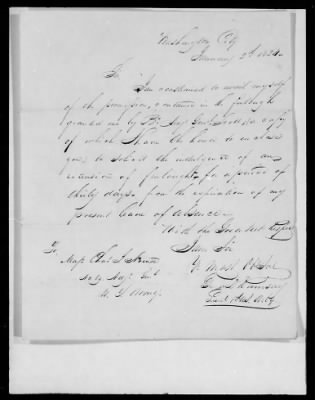 Washington City
January 2d 1824
Sir
I am constrained to avail myself
of the provision, contained in the furlough
granted me by Genl Scott, a copy
of which I have the honor to enclose
you, to solicit the indulgence of an
extension of furlough for a period of
thirty days from the expiration of my
present leave of absence.
With the Greatest Respect
I am Sir
Yr Most Ob Svt
To
Majr Chas J. Nourse
Actg Adjt Genl
U. S. Army